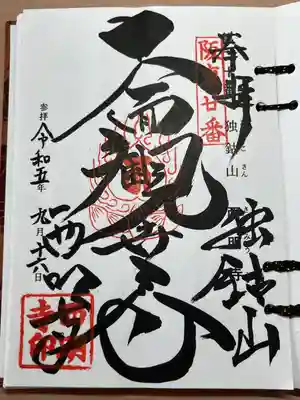 奉拝
独鈷山
阪東廿番
独鈷山
西明寺
観世音
西明寺
参拝 令和五年 九月十六日